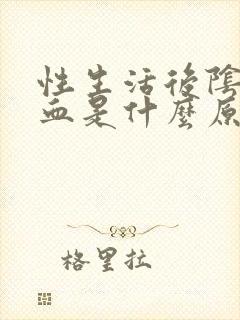 性生活後陰
血是什麼原
格里拉